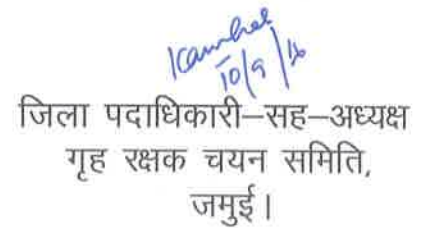 10/9/16
जिला पदाधिकारी–सह–अध्यक्ष
गृह रक्षक चयन समिति,
जमुई।